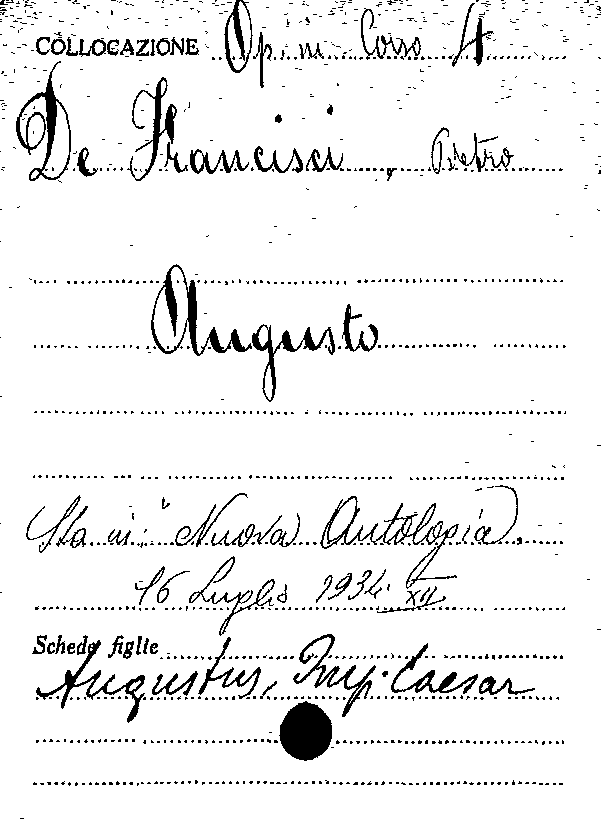 COLLOCAZIONE Op. in Corso 4
De Francisci, Pietro
Augusto
Sta in: "Nuova Antologia".
16 Luglio 1934 XII
Schede figlie
Augustus, Imp. Caesar